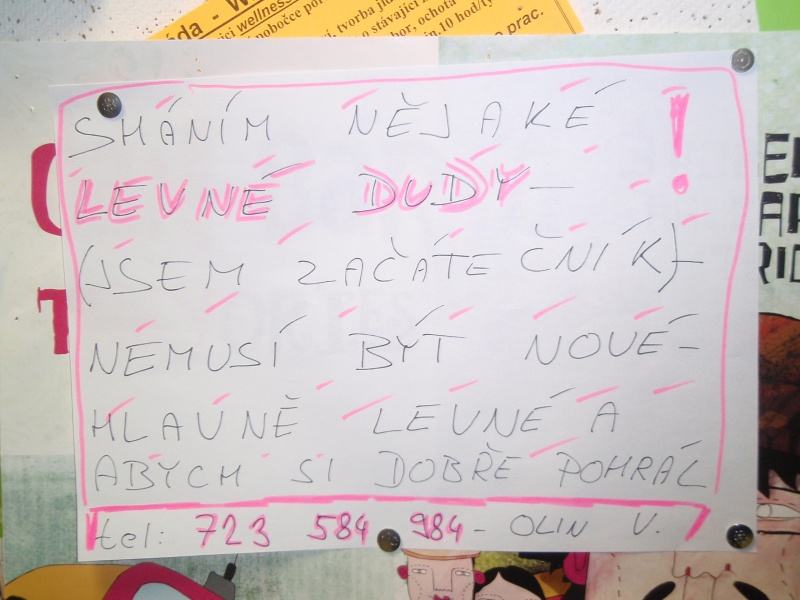 áda - W
ící wellness
pobočce por
í, tvorba jíd
o stávající
bor, ochota
in.10 hod/ty
o prac.
SHÁNÍM NĚJAKÉ !
LEVNÉ DUDY -
(JSEM ZAČÁTEČNÍK) -
NEMUSÍ BÝT NOVÉ -
HLAVNĚ LEVNÉ A
ABYCH SI DOBŘE POHRÁL
tel: 723 584 984 - OLIN V.